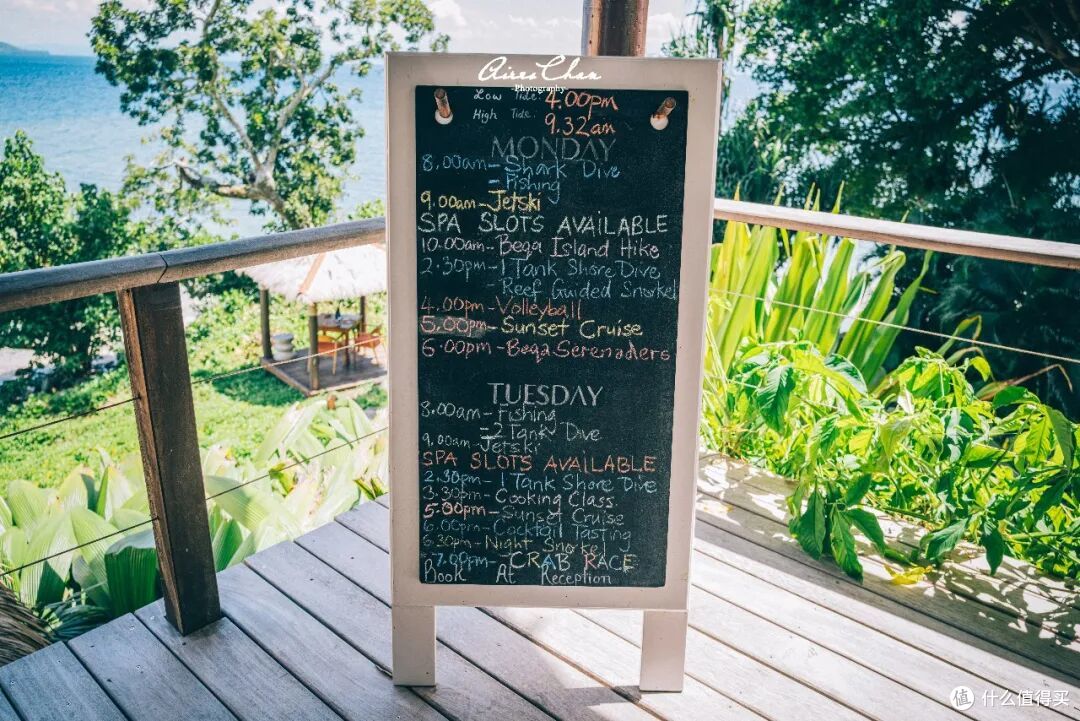 Aires Chan
Photography
Low Tide: 4.00pm
High Tide: 9.32am
MONDAY
8.00am - Shark Dive
- Fishing
9.00am - Jetski
SPA SLOTS AVAILABLE
10.00am - Bega Island Hike
2.30pm - 1 Tank Shore Dive
- Reef Guided Snorkel
4.00pm - Volleyball
5.00pm - Sunset Cruise
6.00pm - Bega Serenaders
TUESDAY
8.00am - Fishing
- 2 Tank Dive
9.00am - Jetski
SPA SLOTS AVAILABLE
2.30pm - 1 Tank Shore Dive
3.30pm - Cooking Class
5.00pm - Sunset Cruise
6.00pm - Cocktail Tasting
6.30pm - Night Snorkel
7.00pm - CRAB RACE
Book At Reception
值 什么值得买